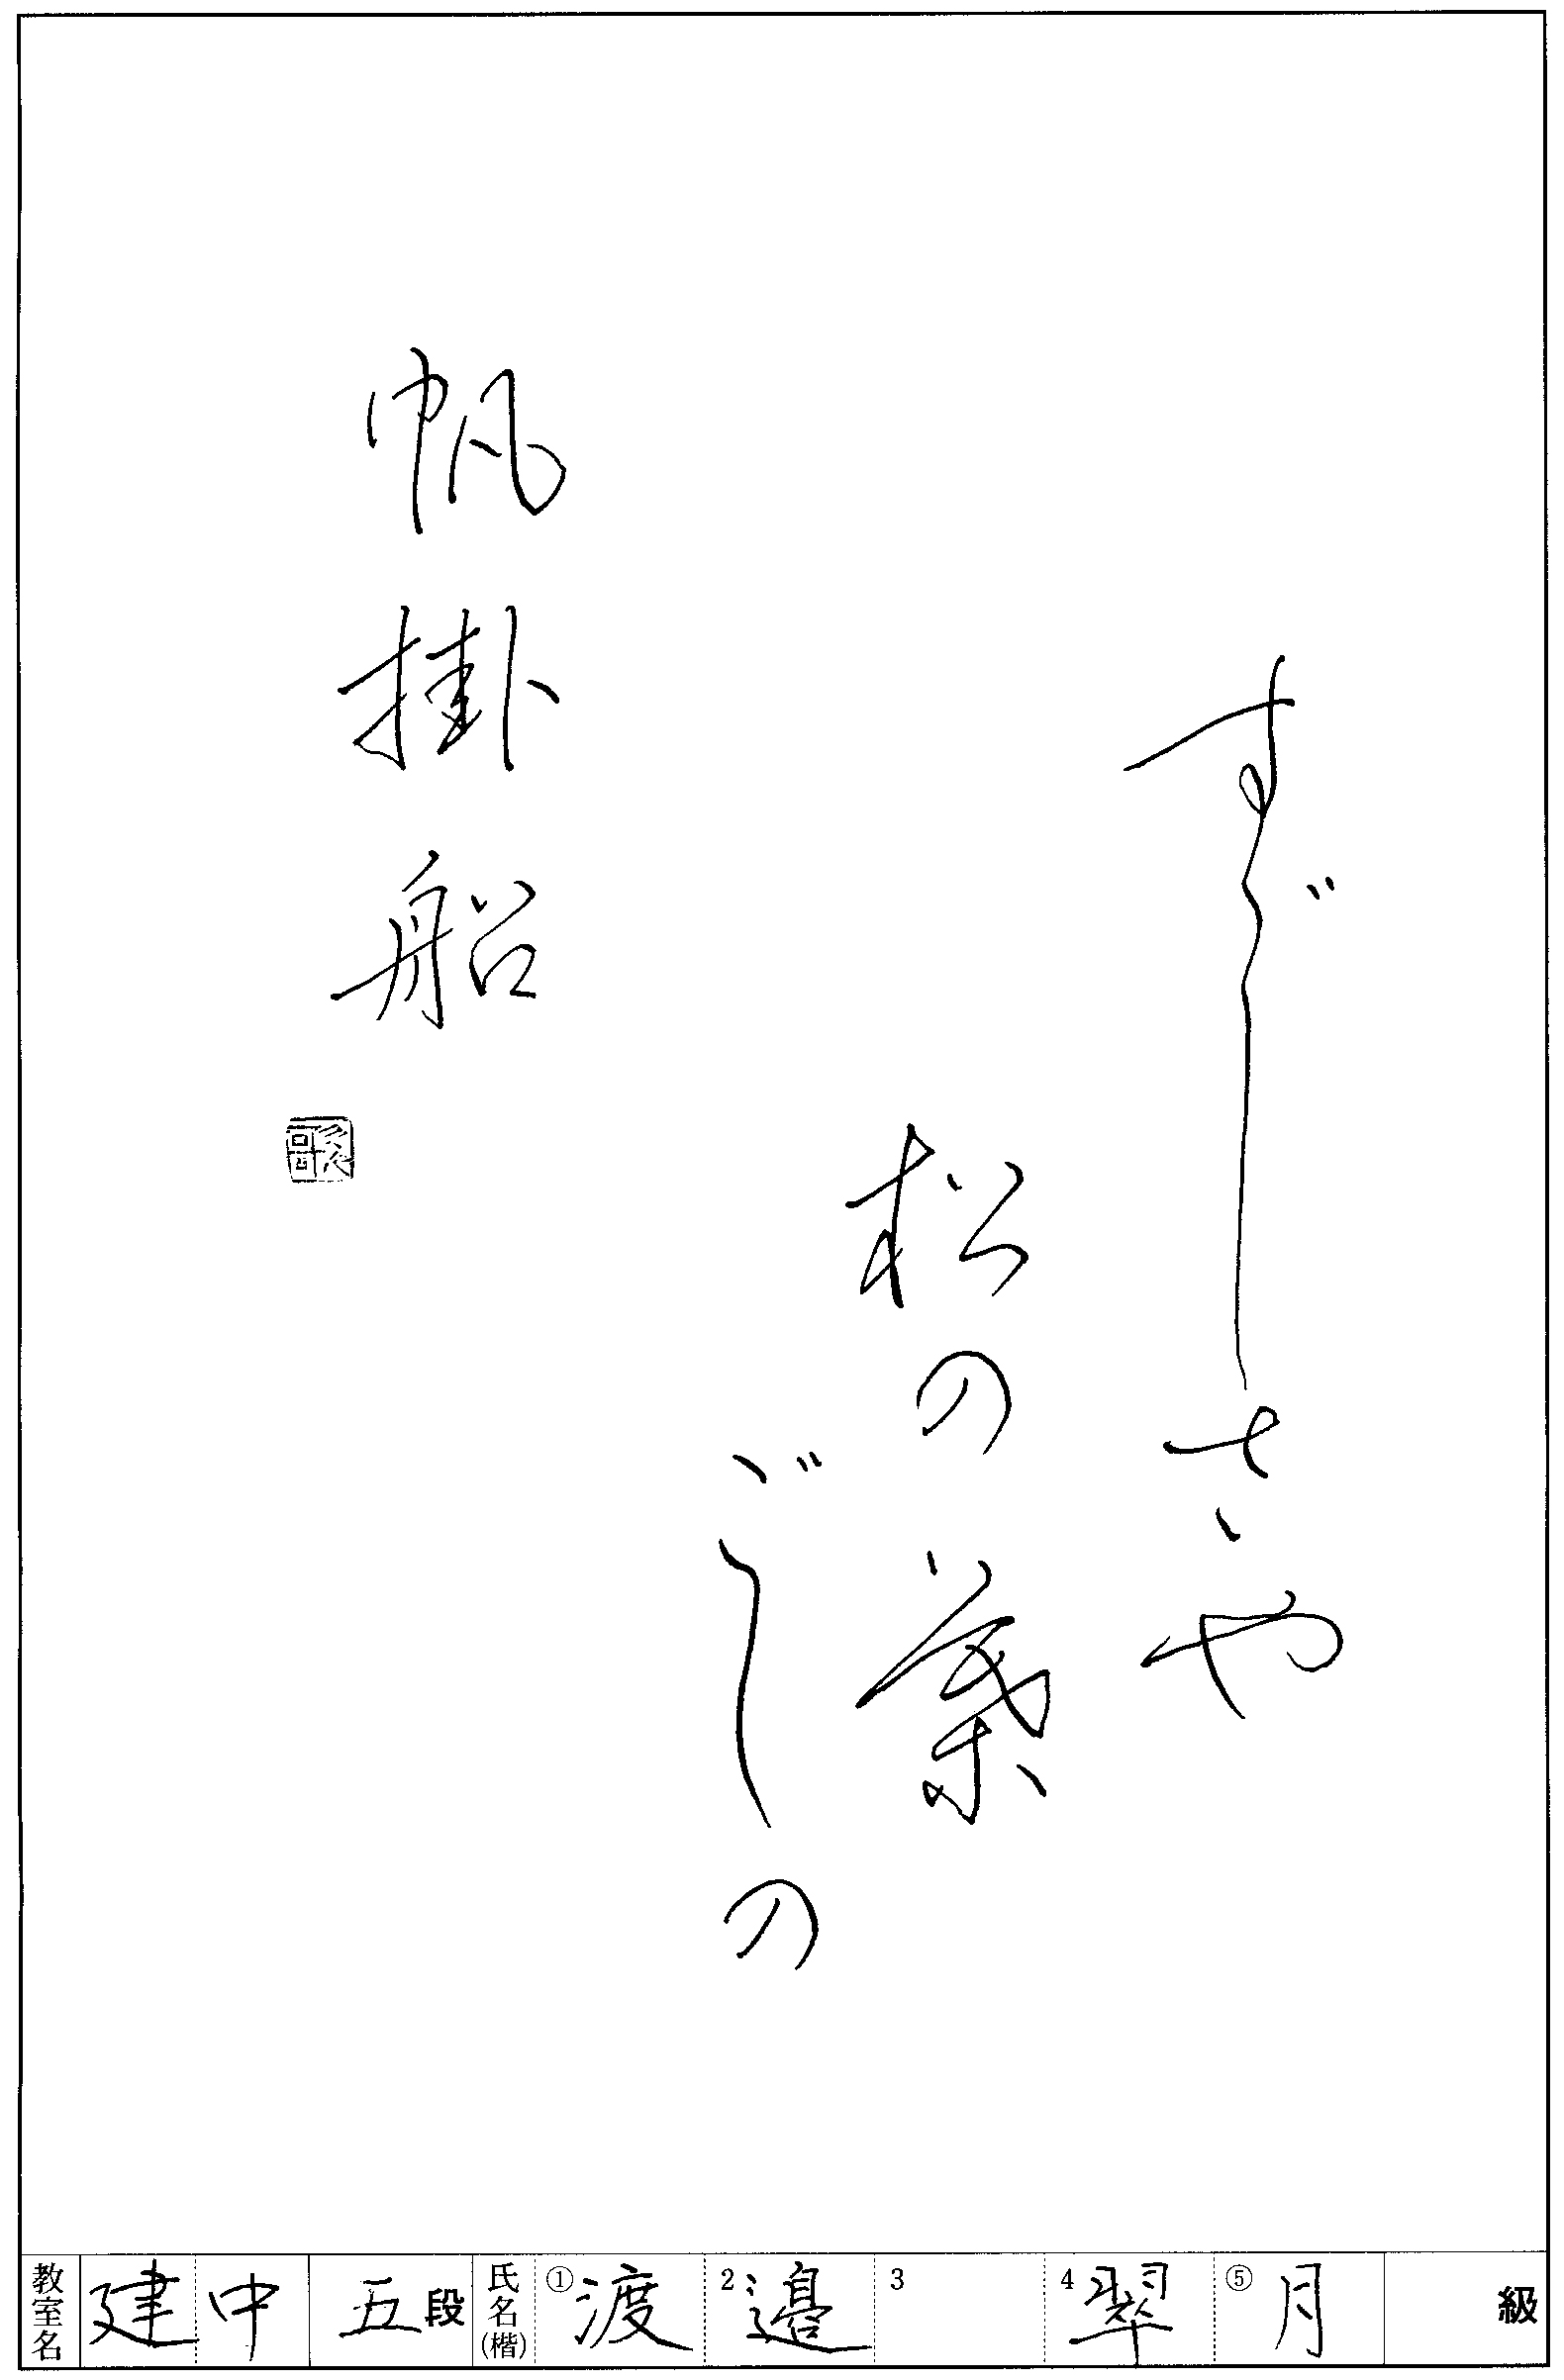 すゞしさや
松の葉
ごしの
帆掛船
教室名 建中 五段 氏名(楷) ①渡 2邉 3 4翠 ⑤月 級